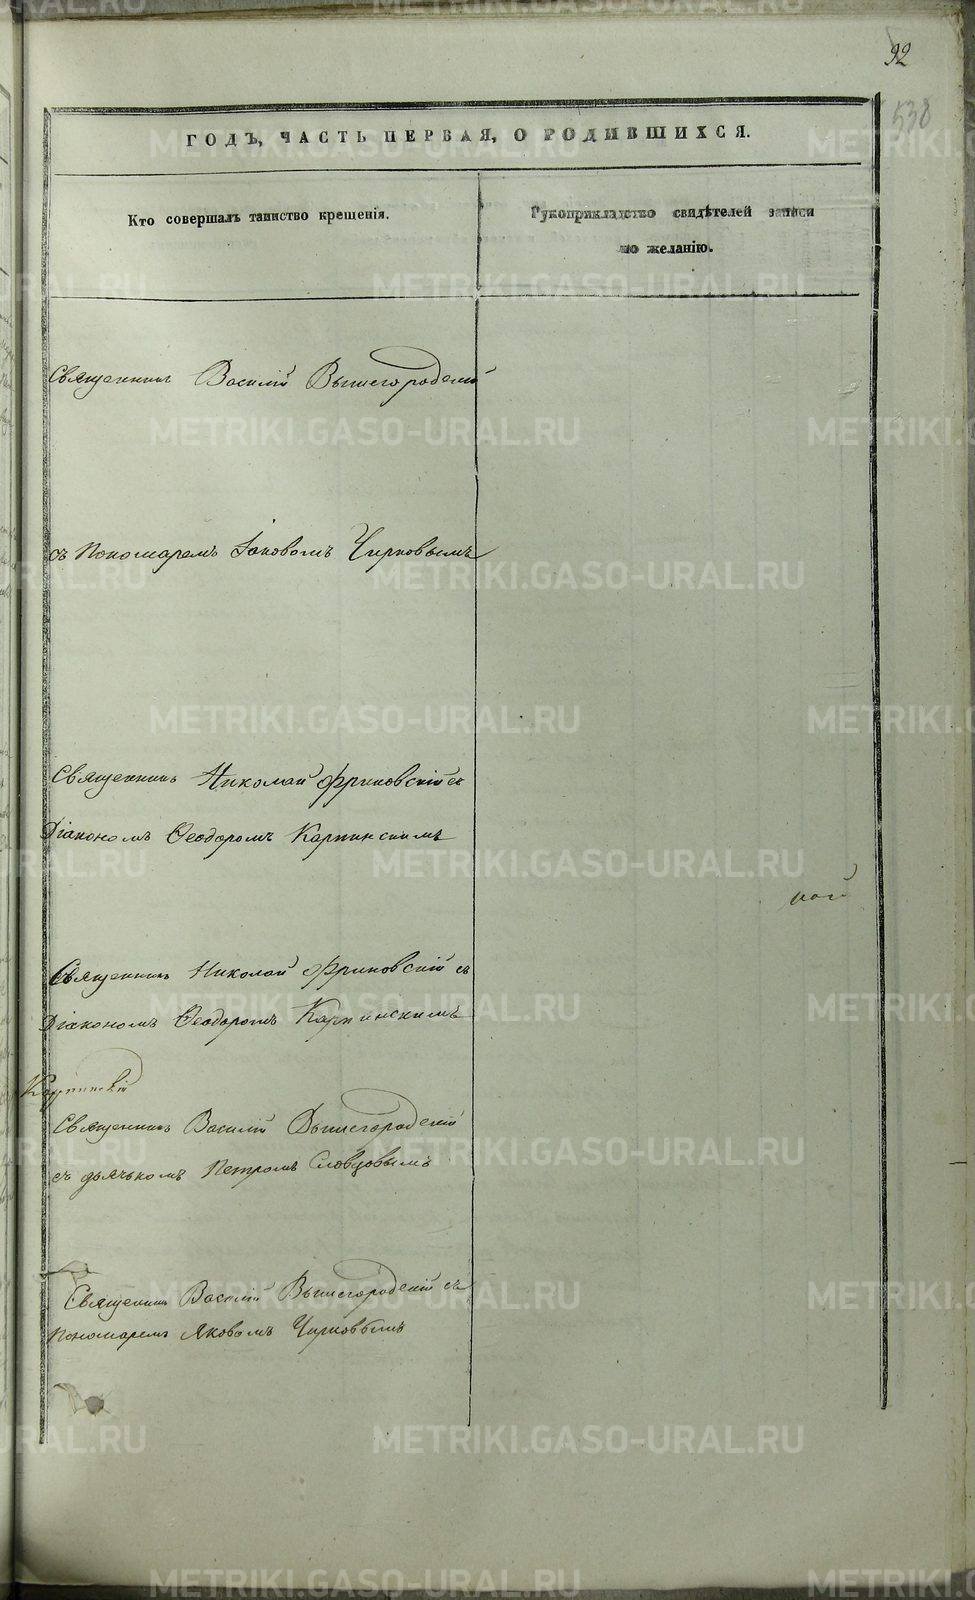 92
538
ГОДЪ, ЧАСТЬ ПЕРВАЯ, О РОДИВШИХСЯ.
Кто совершалъ таинство крещенія.
Рукоприкладство свидѣтелей записи
по желанію.
Священникъ Василій Вышегородскій
съ Пономаремъ Іаковомъ Чирковымъ
Священникъ Николай Фриновскій съ
Діакономъ Ѳеодоромъ Карпинскимъ
Священникъ Николай Фриновскій съ
Діакономъ Ѳеодоромъ Карпинскимъ
Карпинскій
Священникъ Василій Вышегородскій
съ дьячькомъ Петромъ Словцовымъ
Священникъ Василій Вышегородскій съ
Пономаремъ Яковомъ Чирковымъ
METRIKI.GASO-URAL.RU